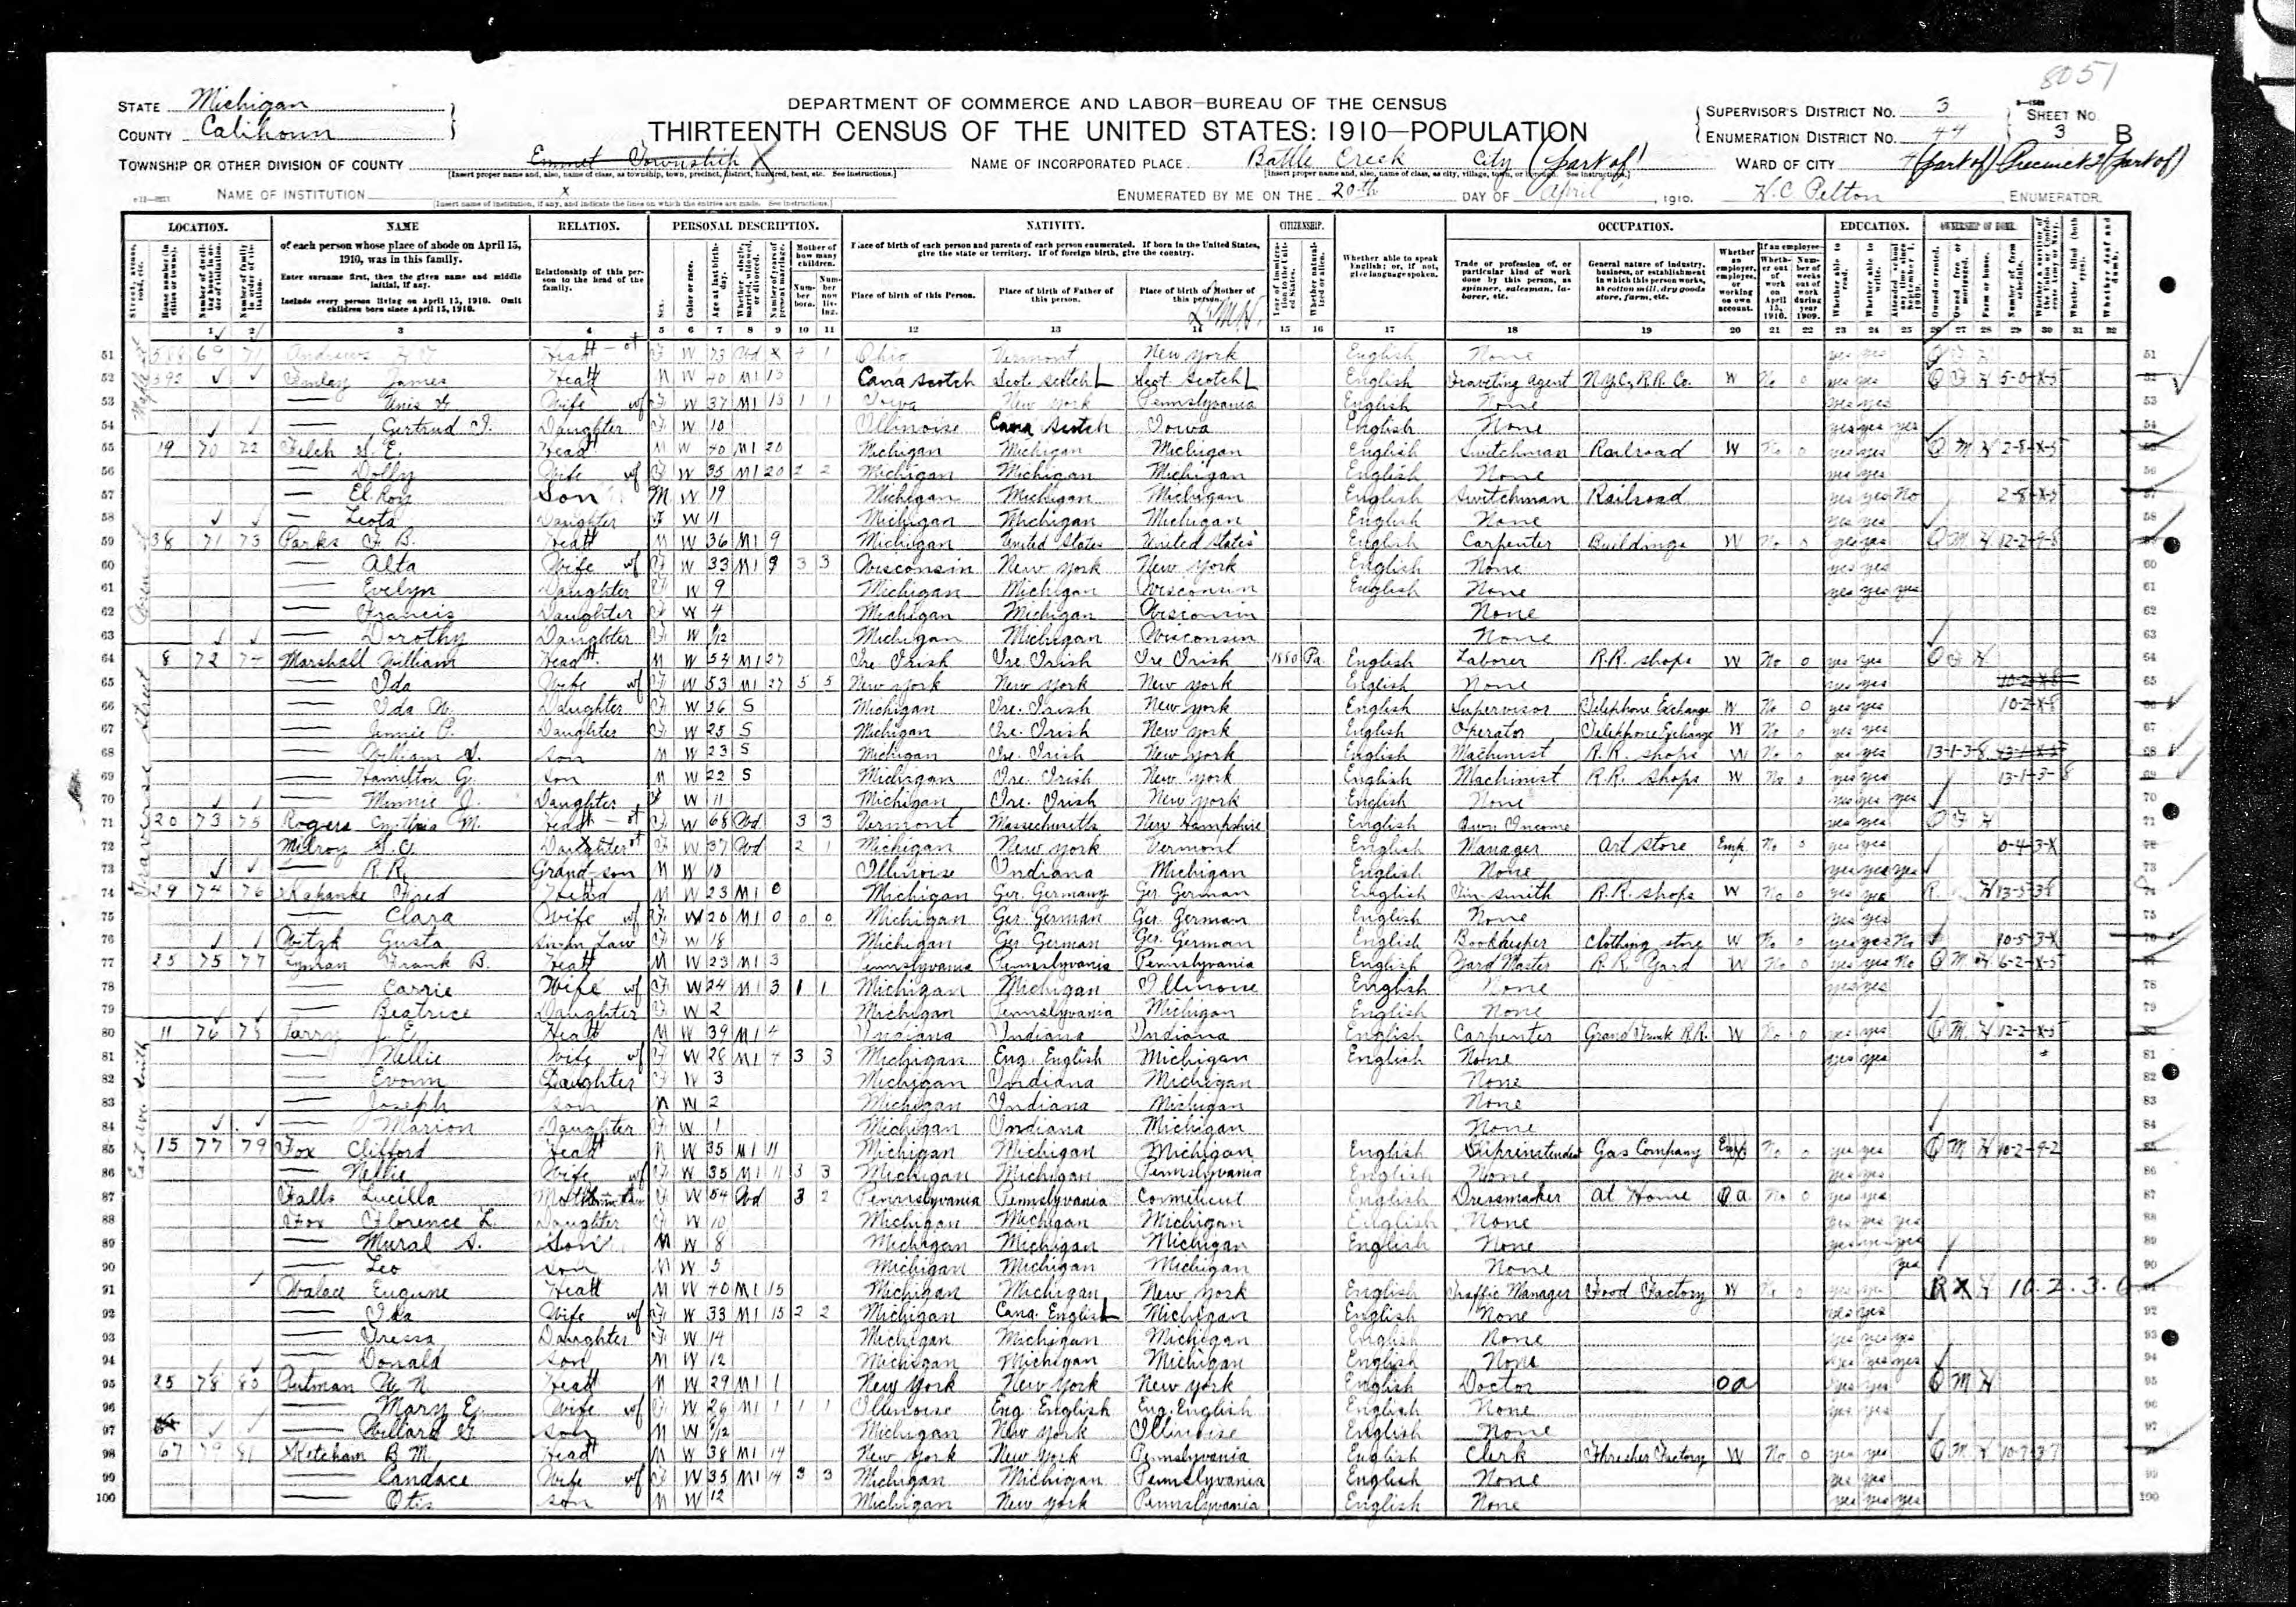 8051
STATE Michigan
COUNTY Calihoun
DEPARTMENT OF COMMERCE AND LABOR—BUREAU OF THE CENSUS
THIRTEENTH CENSUS OF THE UNITED STATES: 1910—POPULATION
SUPERVISOR'S DISTRICT NO. 3
ENUMERATION DISTRICT NO. 44
SHEET NO. 3 B
TOWNSHIP OR OTHER DIVISION OF COUNTY Emmet Township X
NAME OF INCORPORATED PLACE Battle Creek City (part of)
WARD OF CITY 4 (part of) Precinct 2 (part of)
NAME OF INSTITUTION x
ENUMERATED BY ME ON THE 20th DAY OF April, 1910. H.C. Pelton ENUMERATOR.
LOCATION. NAME RELATION. PERSONAL DESCRIPTION. NATIVITY. CITIZENSHIP. OCCUPATION. EDUCATION. OWNERSHIP OF HOME.
of each person whose place of abode on April 15, 1910, was in this family.
Enter surname first, then the given name and middle initial, if any.
Include every person living on April 15, 1910. Omit children born since April 15, 1910.
Relationship of this person to the head of the family.
Place of birth of each person and parents of each person enumerated. If born in the United States, give the state or territory. If of foreign birth, give the country.
Place of birth of this Person. Place of birth of Father of this person. Place of birth of Mother of this person.
Whether able to speak English; or, if not, give language spoken.
Trade or profession of, or particular kind of work done by this person, as spinner, salesman, laborer, etc.
General nature of industry, business, or establishment in which this person works, as cotton mill, dry goods store, farm, etc.
51 69 71 Andrews Head F W 73 Wd 1 Ohio Vermont New York English None yes yes
52 James Head M W 40 M1 13 Cana Scotch Scot. Scotch Scot. Scotch English Traveling Agent N.Y.C. R.R. Co. W No 0 yes yes
53 Wife F W 37 M1 13 1 1 Iowa New York Pennslyvania English None yes yes
54 Gertrud I. Daughter F W 10 Illinoise Cana Scotch Iowa English None yes yes yes
55 19 70 72 Felch S. E. Head M W 40 M1 20 Michigan Michigan Michigan English Switchman Railroad W No 0 yes yes O M H 2-8-X-5
56 Dolly Wife F W 35 M1 20 2 2 Michigan Michigan Michigan English None yes yes
57 El Roy Son M W 19 Michigan Michigan Michigan English Switchman Railroad yes yes No 2-8-X-5
58 Leota Daughter F W 11 Michigan Michigan Michigan English None yes yes
59 38 71 73 Parks F. B. Head M W 36 M1 9 Michigan United States United States English Carpenter Buildings W No 0 yes yes O M H 12-2-9-8
60 Alta Wife F W 33 M1 9 3 3 Wisconsin New York New York English None yes yes
61 Evelyn Daughter F W 9 Michigan Michigan Wisconsin English None yes yes yes
62 Francis Daughter F W 4 Michigan Michigan Wisconsin None
63 Dorothy Daughter F W Michigan Michigan Wisconsin None
64 8 72 Marshall William Head M W 54 M1 27 Ire. Irish Ire. Irish Ire. Irish 1880 Pa English Laborer R.R. shops W No 0 yes yes O F H
65 Ida Wife F W 53 M1 27 5 5 New York New York New York English None yes yes
66 Ida Daughter F W 26 S Michigan Ire. Irish New York English Supervisor Telephone Exchange W No 0 yes yes 10-2-X-8
67 Jennie P. Daughter F W 25 S Michigan Ire. Irish New York English Operator Telephone Exchange W No 0 yes yes
68 William son M W 23 S Michigan Ire. Irish New York English Machinist R.R. shops W No 0 yes yes 13-1-3-8
69 Hamilton G. son M W 22 S Michigan Ire. Irish New York English Machinist R.R. shops W No 0 yes yes 13-1-3-8
70 Minnie J. Daughter F W 11 Michigan Ire. Irish New York English None yes yes yes
71 20 73 75 Rogers Cynthia M. Head F W 68 Wd 3 3 Vermont Massechusetts New Hampshire English Own Income yes yes O F H
72 Milroy Daughter F W 37 Wd 2 1 Michigan New York Vermont English Manager Art store Emp. No 0 yes yes 0-4-3-X
73 R.R. Grand-son M W 10 Illinoise Indiana Michigan English None yes yes yes
74 29 74 76 Fred Head M W 23 M1 0 Michigan Ger. Germany Ger. German English Tin smith R.R. shops W No 0 yes yes R H 13-5-3-8
75 Clara Wife F W 20 M1 0 0 0 Michigan Ger. German Ger. German English None yes yes
76 Witzk Gusta Sis in Law F W 18 Michigan Ger. German Ger. German English Bookkeeper Clothing store W No 0 yes yes No 10-5-3-X
77 25 75 77 Lyman Frank B. Head M W 23 M1 3 Pennsylvania Pennslyvania Pennslyvania English Yard Master R.R. Yard W No 0 yes yes No O M H 6-2-X-5
78 Carrie Wife F W 24 M1 3 1 1 Michigan Michigan Illinoise English None yes yes
79 Beatrice Daughter F W 2 Michigan Pennslyvania Michigan English None
80 11 76 78 Parry J. E. Head M W 39 M1 4 Indiana Indiana Indiana English Carpenter Grand Trunk R.R. W No 0 yes yes O M H 12-2-X-5
81 Nellie Wife F W 28 M1 4 3 3 Michigan Eng. English Michigan English None yes yes
82 Evonn Daughter F W 3 Michigan Indiana Michigan None
83 Joseph son M W 2 Michigan Indiana Michigan None
84 Marion Daughter F W 1 Michigan Indiana Michigan None
85 15 77 79 Fox Clifford Head M W 35 M1 11 Michigan Michigan Michigan English Suprinstendent Gas Company Emp. No 0 yes yes O M H 10-2-9-2
86 Nellie Wife F W 35 M1 11 3 3 Michigan Michigan Pennslyvania English None yes yes
87 Falls Lucilla F W 54 Wd 3 2 Pennslyvania Pennslyvania Conneticut English Dressmaker At Home O a No 0 yes yes
88 Fox Florence L. Daughter F W 10 Michigan Michigan Michigan English None yes yes yes
89 Mural S. Son M W 8 Michigan Michigan Michigan English None yes yes yes
90 Leo son M W 5 Michigan Michigan Michigan None yes
91 Walace Eugune Head M W 40 M1 15 Michigan Michigan New York English Traffic Manager Food Factory W No 0 yes yes R X H 10-2-3-6
92 Ida Wife F W 33 M1 15 2 2 Michigan Cana. English Michigan English None yes yes
93 Tressa Daughter F W 14 Michigan Michigan Michigan English None yes yes yes
94 Donald son M W 12 Michigan Michigan Michigan English None yes yes yes
95 25 78 80 Putman W. N. Head M W 29 M1 1 New York New York New York English Doctor O a yes yes O M H
96 Mary E. Wife F W 26 M1 1 1 1 Illinoise Eng. English Eng. English English None yes yes
97 Willard G. son M W Michigan New York Illinoise English None
98 67 79 81 Ketcham B. M. Head M W 38 M1 14 New York New York Pennslyvania English Clerk Thresher Factory W No 0 yes yes O M H 10-7-3-7
99 Candace Wife F W 35 M1 14 3 3 Michigan Michigan Pennslyvania English None yes yes
100 Otis son M W 12 Michigan New York Pennslyvania English None yes yes yes